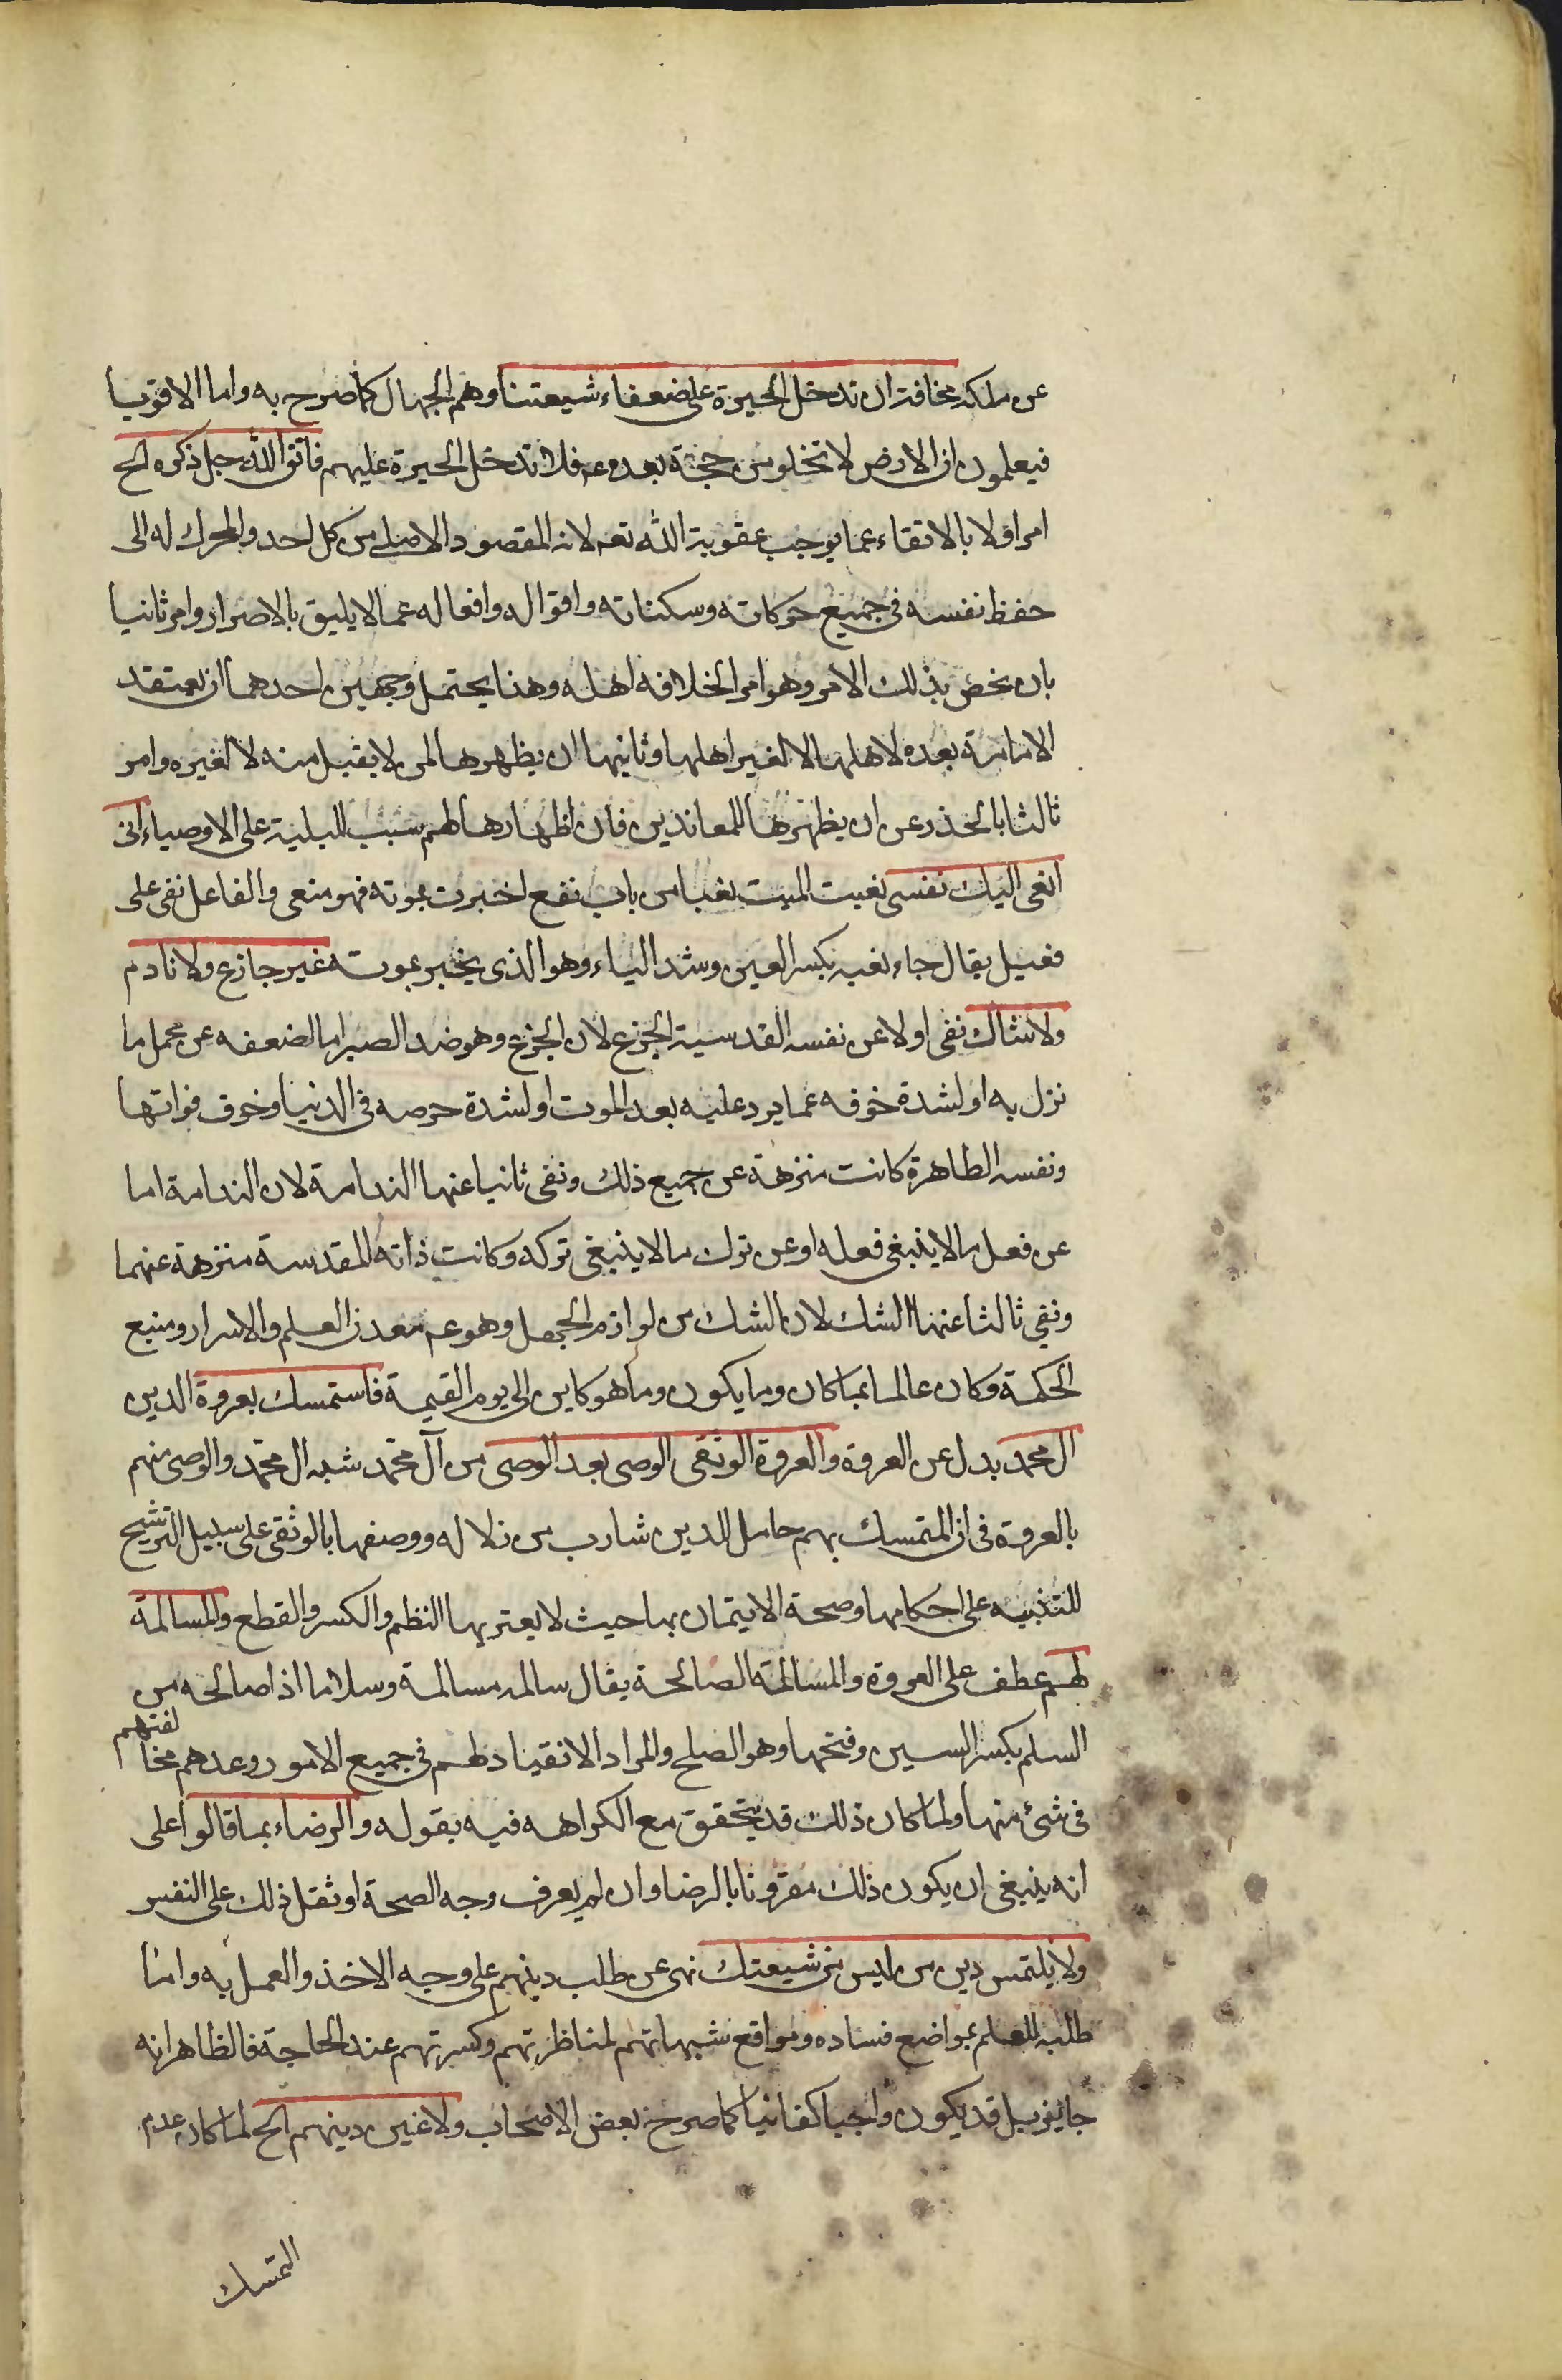 عن ملكه مخافة ان تدخل الحيرة على ضعفاء شيعتنا وهم الجهال كما صرح به واما الاقويا
فيعلمون ان الارض لا تخلو من حجة بعده عم فلا تدخل الحيرة عليهم فاتق الله جل ذكره الخ
امر اولا بالاتقاء عما يوجب عقوبة الله تعه لانه المقصود الاصلى من كل احد والمحرك له الى
حفظ نفسه فى جميع حركاته وسكناته واقواله وافعاله عما لا يليق بالاصرار وامر ثانيا
بان يخص بذلك الامر وهو امر الخلافه اهله وهذا يحتمل وجهين احدهما ان يعتقد
الامامة بعده لاهلها لا لغير اهلها وثانيها ان يظهرها لمن لا يقبل منه لا لغيره وامر
ثالثا بالحذر عن ان يظهرها للمعاندين فان اظهارها لهم سبب البلية على الاوصياء انى
انعى اليك نفسى نعيت الميت نعيا من باب نفع اخبرت بموته فهو منعى والفاعل نفى على
فعيل يقال جاء نعيه بكسر العين وشد الياء وهو الذى يخبر بموته غير جازع ولا نادم
ولا شاك نفى اولا عن نفسه القدسية الجزع لان الجزع وهو ضد الصبر اما لضعفه عن تحمل ما
نزل به او لشدة خوفه عما يرد عليه بعد الموت او لشدة حرصه فى الدنيا وخوف فواتها
ونفسه الطاهرة كانت منزهة عن جميع ذلك ونفى ثانيا عنها الندامة لان الندامة اما
عن فعل ما لا ينبغى فعله او عن ترك ما لا ينبغى تركه وكانت ذاته المقدسة منزهة عنهما
ونفى ثالثا عنها الشك لان الشك من لوازم الجهل وهو عم معدن العلم والاسرار ومنبع
الحكمة وكان عالما بما كان وما يكون وما هو كاين الى يوم القيمة فاستمسك بعروة الدين
ال محمد بدل عن العروة والعروة الوثقى الوصى بعد الوصى من آل محمد شبه ال محمد والوصى منهم
بالعروة فى ان المتمسك بهم حامل الدين شارب من زلاله ووصفها بالوثقى على سبيل الترشيح
للتنبيه على احكامها وصحة الايتمان بها حيث لا يعتريها النظم والكسر والقطع والمسالمة
لهم عطف على العروة والمسالمة الصالحة يقال سالمه مسالمة وسلاما اذا صالحه من
السلم بكسر السين وفتحها وهو الصلح والمراد الانقياد لهم فى جميع الامور وعدهم مخالفتهم
فى شئ منها ولما كان ذلك قد يتحقق مع الكراهه فيه بقوله والرضاء بما قالوا على
انه ينبغى ان يكون ذلك مقرونا بالرضا وان لم يعرف وجه الصحة او ثقل ذلك على النفس
ولا يلتمس دين من ليس من شيعتك نهى عن طلب دينهم على وجه الاخذ والعمل به واما
طلبه للعلم بمواضع فساده ومواقع شبهاتهم لمناظرتهم وكسرتهم عند الحاجة فالظاهر انه
جايز بل قد يكون واجبا كفائيا كما صرح بعض الاصحاب ولا غين دينهم الخ لما كان عدم
التمسك